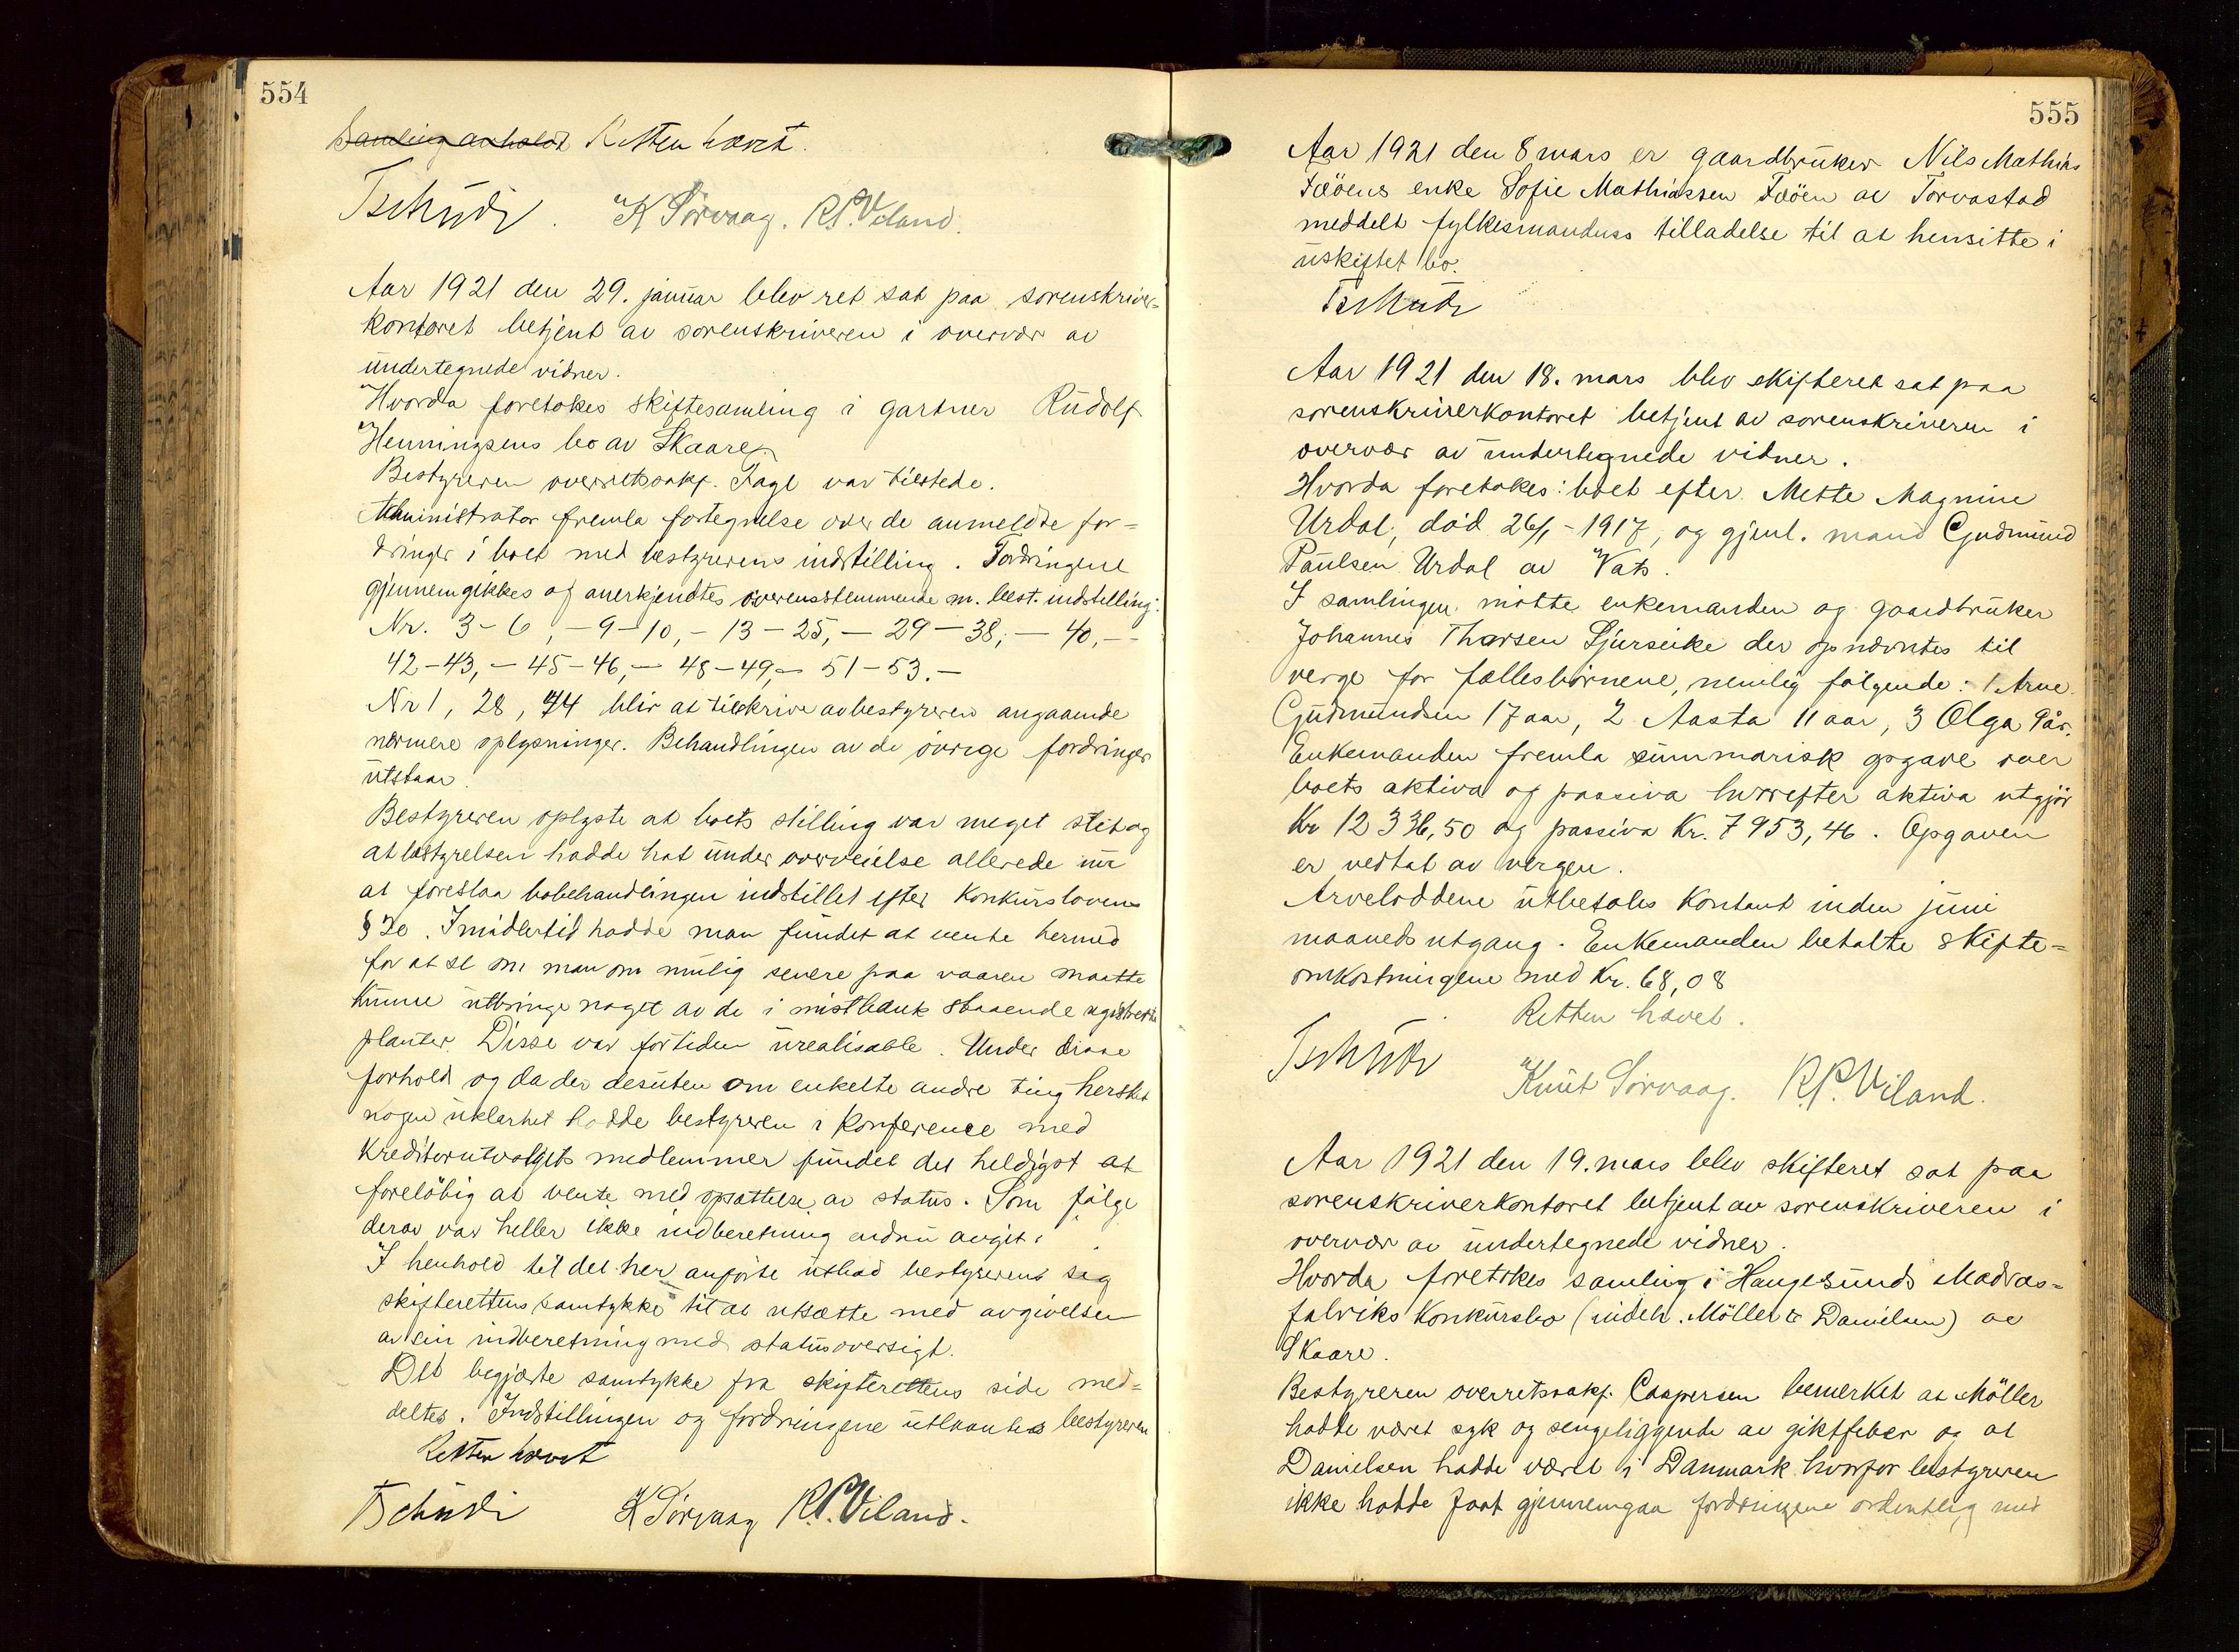 554
Samling avholdt Retten hævet.
Tschudi. K Sørvaag. R.P. Viland.
Aar 1921 den 29. januar blev ret sat paa sorenskriver-
kontoret betjent av sorenskriveren i overvær av
undertegnede vidner.
Hvorda foretokes skiftesamling i gartner Rudolf
Henningsens bo av Skaare.
Bestyreren overretssakf. Fagl var tilstede.
Administrator fremla fortegnelse over de anmeldte for-
dringer i boet med bestyrerens indstilling. Fordringene
gjennemgikkes og anerkjendtes overensstemmende m. best. indstilling:
Nr. 3-6, -9-10, -13-25, -29-38, -40, -
42-43, -45-46, -48-49, -51-53. -
Nr 1, 28, 44 blir at tilskrive av bestyreren angaaende
nærmere oplysninger. Behandlingen av de övrige fordringer
utstaar.
Bestyreren oplyste at boets stilling var meget slet og
at bestyrelsen hadde hat under overveielse allerede nu
at foreslaa bobehandlingen indstillet efter Konkurslovens
§ 20. Imidlertid hadde man fundet at vente hermed
for at se om man om mulig senere paa vaaren maatte
kunne utbringe noget av de i mistbænk staaende registrerte
planter. Disse var for tiden urealisable. Under disse
forhold og da der desuten om enkelte andre ting hersket
nogen uklarhet hadde bestyreren i konference med
kreditorutvalgets medlemmer fundet det heldigst at
foreløbig at vente med opsættelse av status. Som følge
derav var heller ikke indberetning endnu avgit.
I henhold til det her anførte utbad bestyreren sig
skifterettens samtykke til at utsætte med avgivelsen
av sin indberetning med statusoversigt.
Det begjærte samtykke fra skifterettens side med-
deltes. Indstillingen og fordringene utlaantes bestyreren
Retten hævet
Tschudi K Sørvaag R.P. Viland.
555
Aar 1921 den 8 mars er gaardbruker Nils Mathias
Fæöens enke Sofie Mathiassen Fæöen av Torvastad
meddelt fylkesmandens tilladelse til at hensitte i
uskiftet bo.
Tschudi
Aar 1921 den 18. mars blev skifteret sat paa
sorenskriverkontoret betjent av sorenskriveren i
overvær av undertegnede vidner.
Hvorda foretokes: boet efter Mette Magnine
Urdal, död 26/1-1917, og gjenl. mand Gudmund
Paulsen Urdal av Vats.
I samlingen møtte enkemanden og gaardbruker
Johannes Thorsen Sjurseike der opnævntes til
verge for fællesbörnene, nemlig følgende: 1 Arne
Gudmundsen 17 aar, 2 Aasta 11 aar, 3 Olga 9 år.
Enkemanden fremla summarisk opgave over
boets aktiva og passiva hvorefter aktiva utgjör
Kr 12 336,50 og passiva Kr. 7953,46. Opgaven
er vedtat av vergen.
Arveloddene utbetales kontant inden juni
maaneds utgang. Enkemanden betalte skifte-
omkostningene med Kr. 68,08
Retten hævet.
Tschudi
Knut Sørvaag. R.P. Viland.
Aar 1921 den 19. mars blev skifteret sat paa
sorenskriverkontoret betjent av sorenskriveren i
overvær av undertegnede vidner.
Hvorda foretokes samling i Haugesunds Madras-
fabriks Konkursbo (indeh. Möller & Danielsen) av
Skaare.
Bestyreren overretssakf. Caspersen bemerket at Möller
hadde været syk og sengeliggende av giktfeber og at
Danielsen hadde været i Danmark hvorfor bestyreren
ikke hadde faat gjennemgaa fordringene ordentlig med